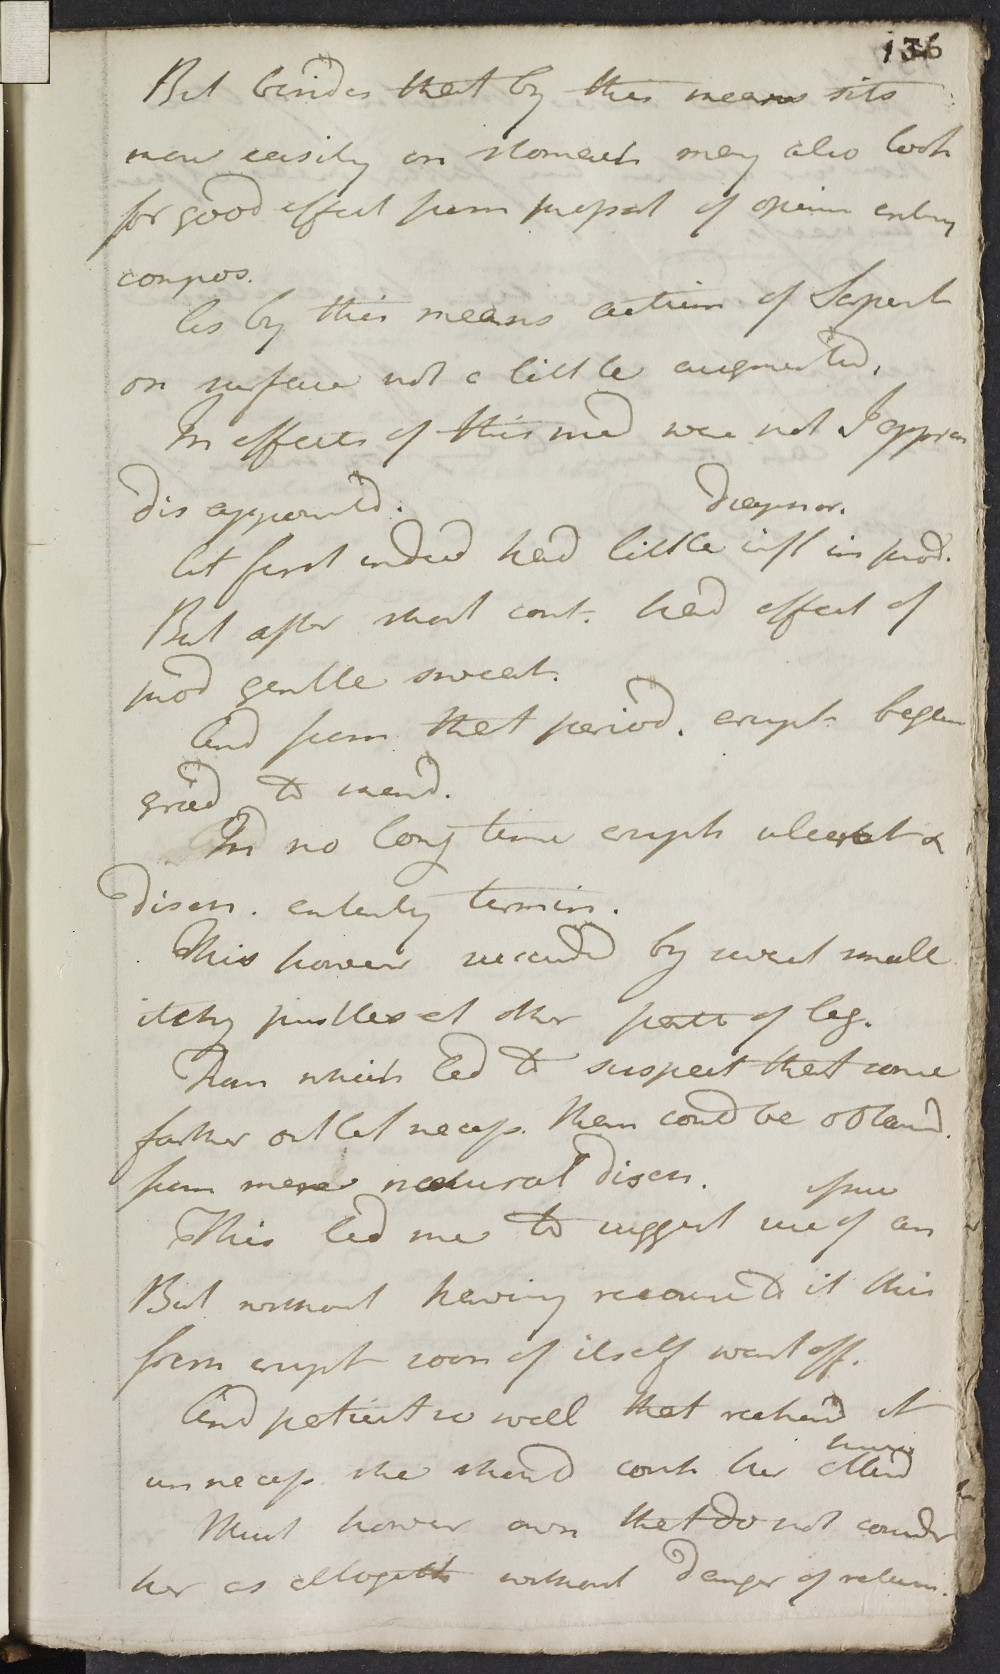 136
But besides that by this means sits
more easily on stomach may also look
for good effect from propert of opium enting
compos.
As by this means action of Serpent
on surface not a little augmented.
In effects of this med were not I appreh
disappointed. diaphor.
At first indeed had little infl in prod.
But after short cont. had effect of
prod gentle sweat.
And from that period. erupt. began
grad to mend.
In no long time erupts ulcerat &
disch. entirely termin.
This however succeeded by several small
itchy pustles at other parts of leg.
From which led to suspect that some
farther outlet necess. than could be obtaind.
from mere natural disch.
issue
This led me to suggest use of an
But without having recourse to it this
fresh erupt soon of itself went off.
And patient so well that reckond it
unnecess she should cont her attend
here
Must however own that do not consider
her as altogeth without danger of return.